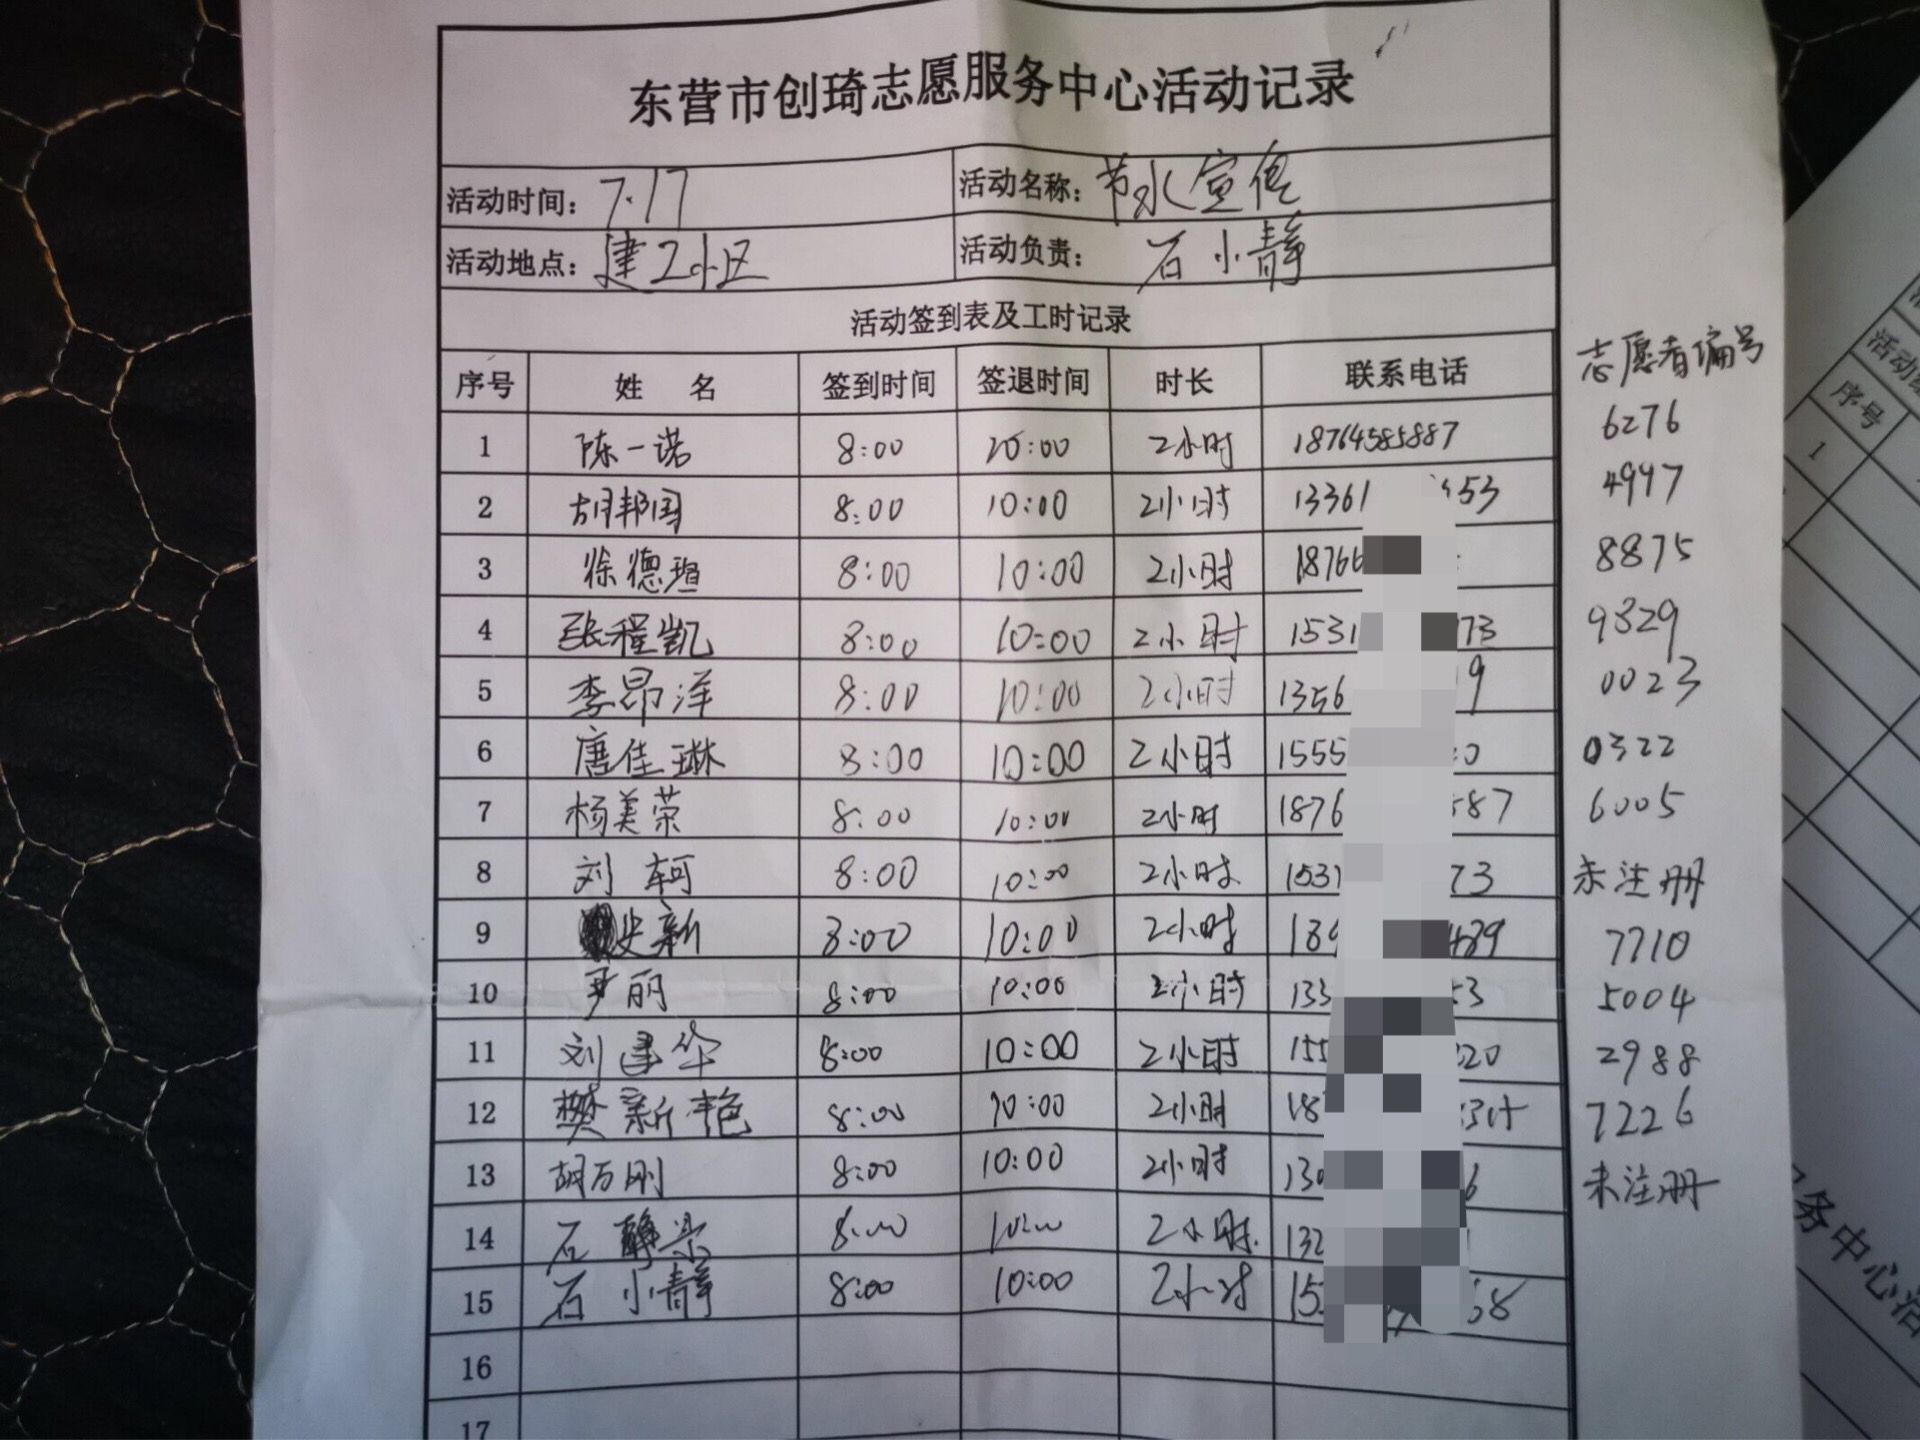 东营市创琦志愿服务中心活动记录
活动时间: 7.17 活动名称: 节水宣传
活动地点: 建工小区 活动负责: 石小静
活动签到表及工时记录
序号 姓 名 签到时间 签退时间 时长 联系电话 志愿者编号
1 陈一诺 8:00 20:00 2小时 18764585887 6276
2 胡邦国 8:00 10:00 2小时 13361 53 4997
3 徐德瑄 8:00 10:00 2小时 18766 8875
4 张程凯 8:00 10:00 2小时 1531 73 9329
5 李昂泽 8:00 10:00 2小时 1356 9 0023
6 唐佳琳 8:00 10:00 2小时 1555 0 0322
7 杨美荣 8:00 10:00 2小时 1876 887 6005
8 刘轲 8:00 10:00 2小时 1531 73 未注册
9 史新 8:00 10:00 2小时 189 489 7710
10 尹丽 8:00 10:00 2小时 133 53 5004
11 刘建华 8:00 10:00 2小时 155 20 2988
12 樊新艳 8:00 10:00 2小时 187 7226
13 胡万刚 8:00 10:00 2小时 130 6 未注册
14 石 8:00 10:00 2小时 132
15 石小静 8:00 10:00 2小时 15 68
16
17
活动
序号
1
务中心活